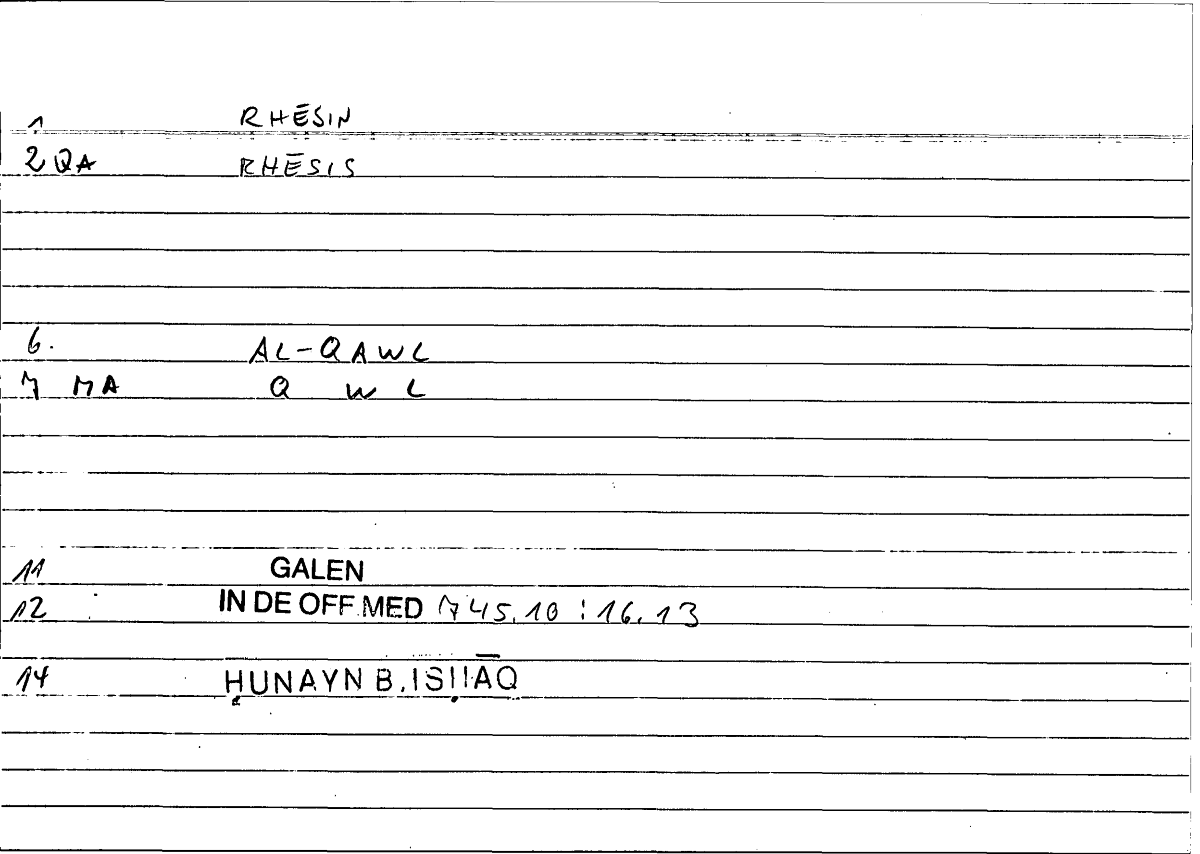 1 RHĒSIN
2 QA RHĒSIS
6. AL-QAWL
7 MA Q W L
11 GALEN
12 IN DE OFF.MED 745.10 : 16.13
14 ḤUNAYN B. ISḤĀQ